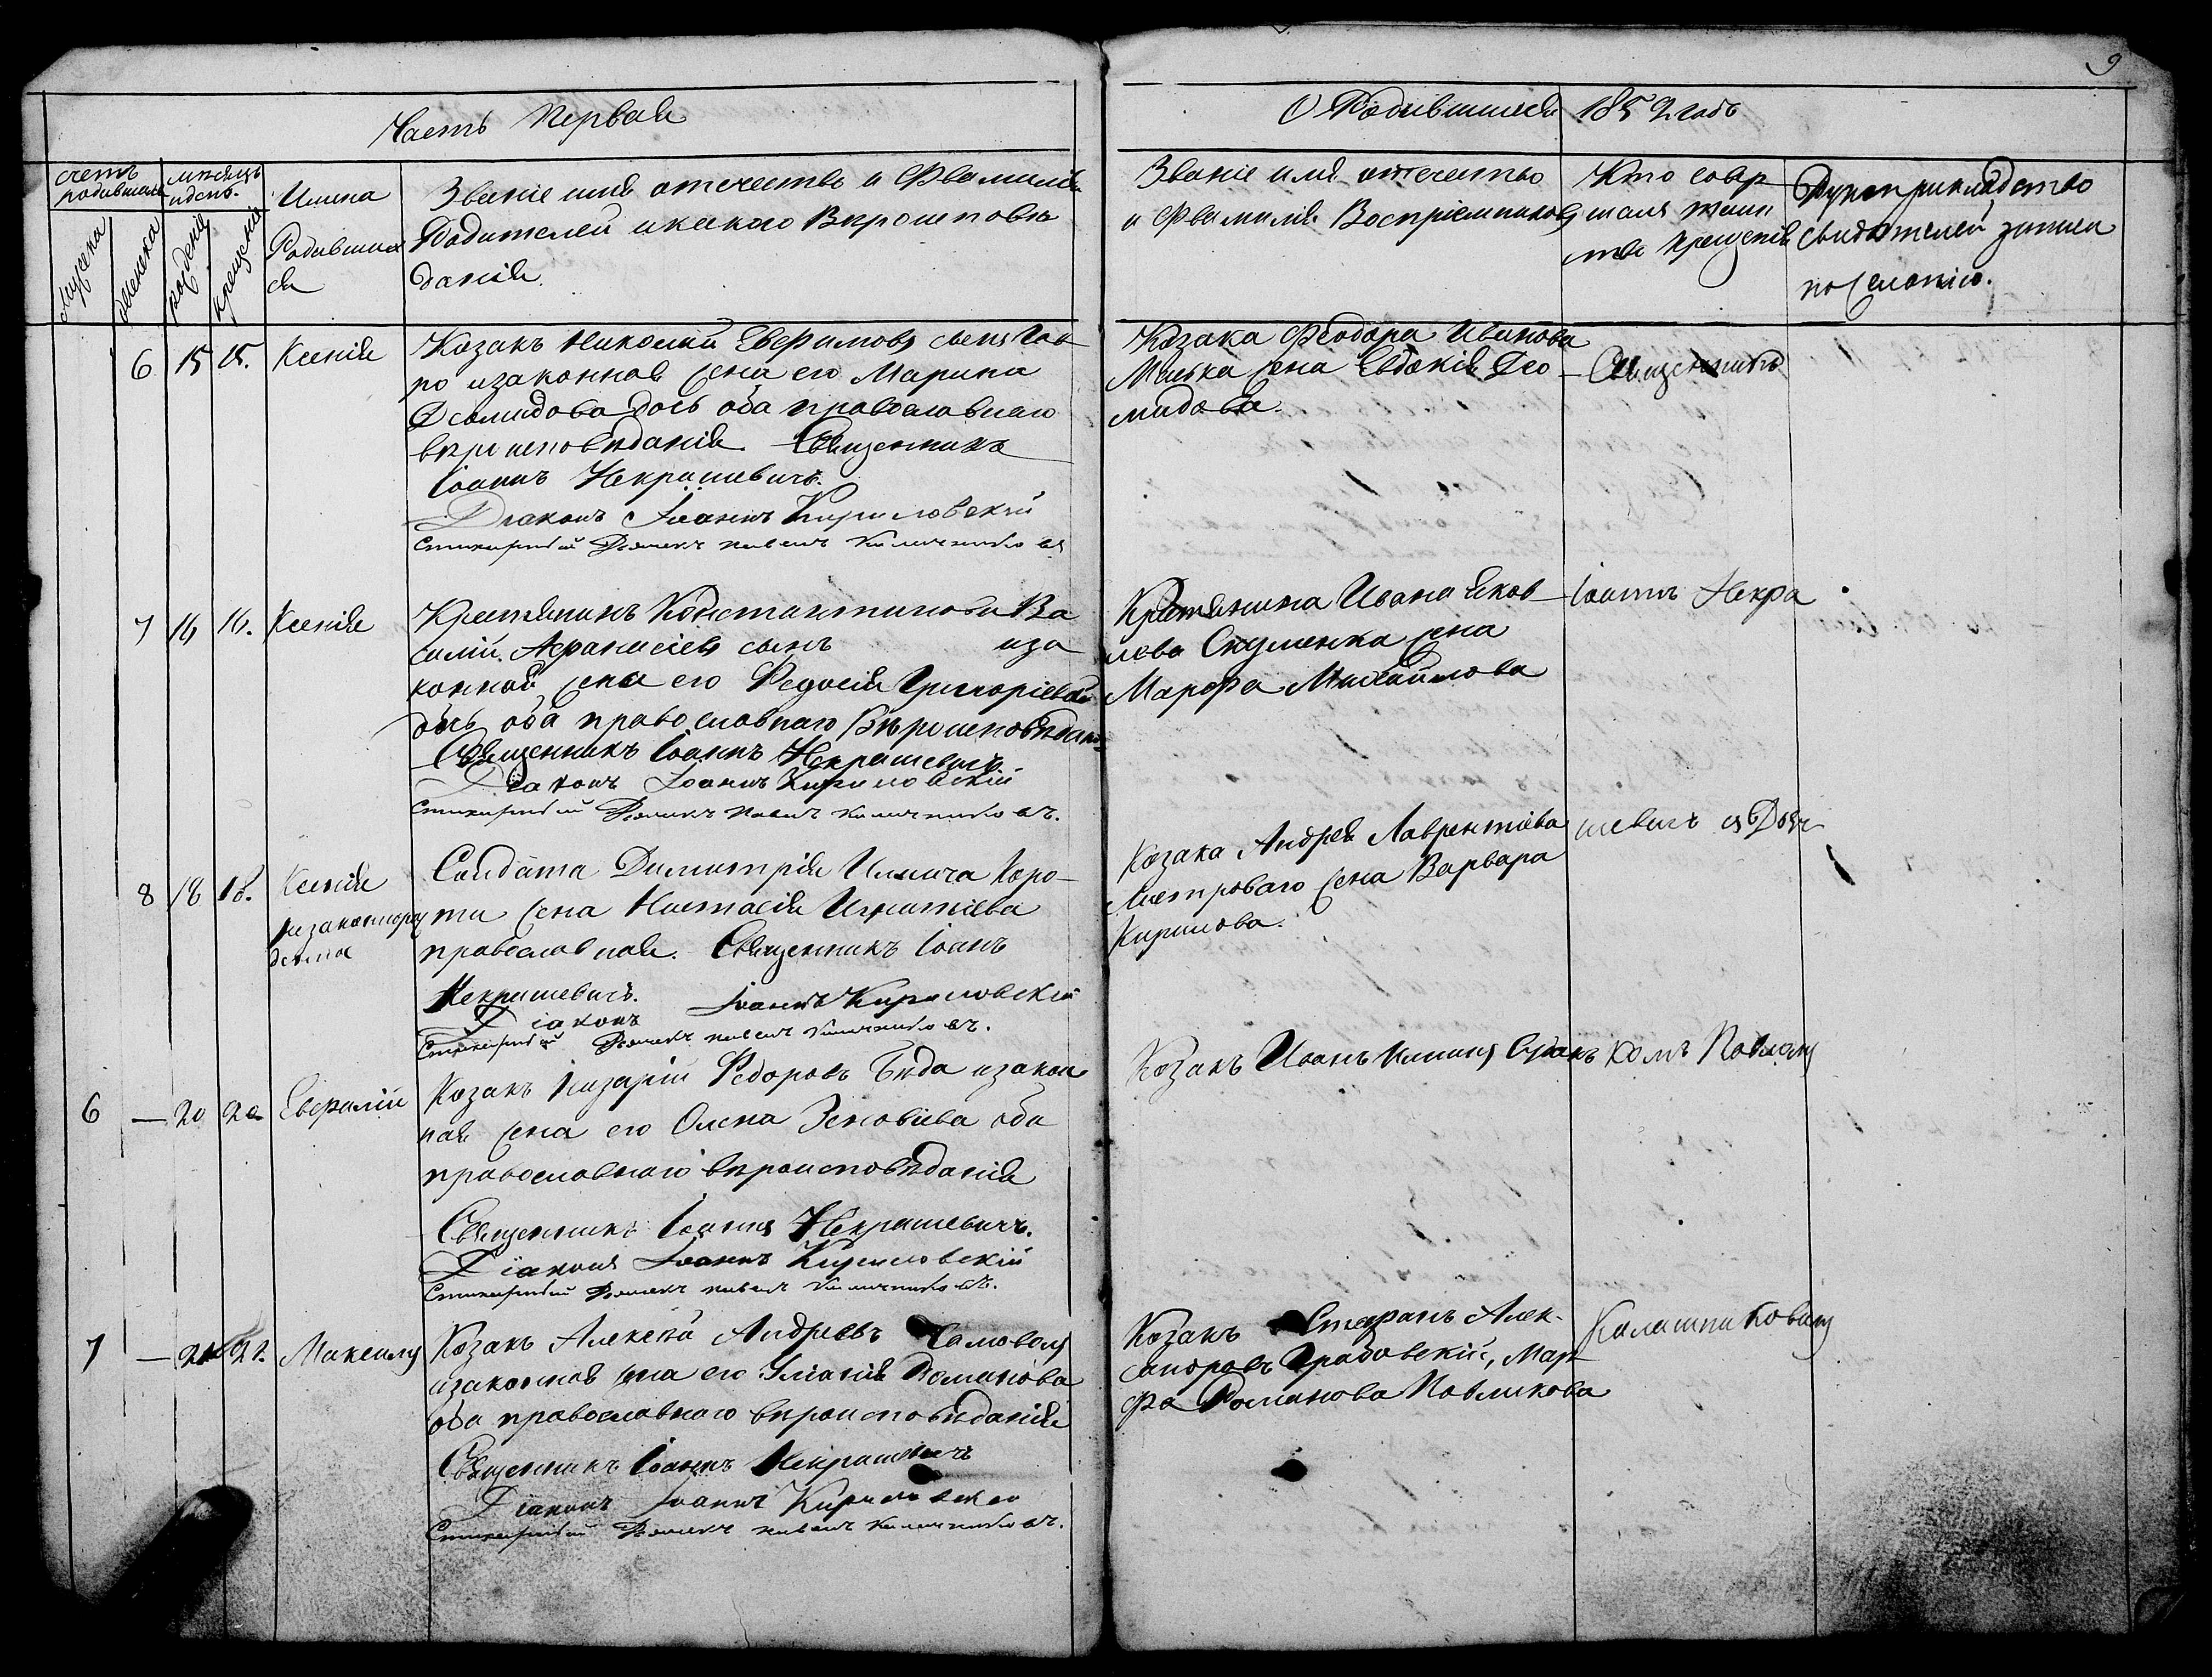 9
Часть Первая
О Родившихся 1852 годъ
счетъ родившихся
мужеска
женска
мѣсяцъ и день.
рождения
крещения
Имена Родившихся
Званіе имя отечество и Фамилія
Родителей и какого Вѣроисповѣ
данія.
Званіе имя отечество
и Фамилія Воспріемниковъ
Кто совер
шалъ таин
тво крещенія
Рукоприкладство
свидѣтелей записи
по желанію.
6 15 15. Ксенія
Козакъ Николай Евфимовъ сынъ
и законная жена его Марина
Діомидова дочь оба православнаго
вѣроисповѣданія. Священникъ
Іоаннъ Некрашевичъ.
Діаконъ Іоаннъ Кириловскій
Стихарный Дьячекъ Павелъ Калашниковъ
Козака Феодора Иванова
жена Евдокія Део
мидова.
Священникъ
7 16 16. Ксенія
Крестьянинъ Константиновъ Ва
силій Афанасіевъ сынъ и за
конная жена его Федосія Григоріева
дочь оба православнаго Вѣроисповѣдан
Священникъ Іоаннъ Некрашевичъ
Діаконъ Іоаннъ Кириловскій
Стихарный Дьячекъ Павелъ Калашниковъ.
Крестянина Ивана Яков
лева жена
Марфа Михайлова
Іоаннъ Некра
8 18 18. Ксенія
незаконноро
жденна
Солдата Димитрія Илича Коро
ти жена Настасія Игнатіева
православная. Священникъ Іоанъ
Некрашевичъ.
Діаконъ Іоаннъ Кириловскій
Стихарный Дьячекъ Павелъ Калашниковъ.
Козака Андрея Лаврентіева
жена Варвара
Кирилова.
шевичъ съ Дьяч
6 — 20 20 Евфимій
Козакъ Назарій Федоровъ Бѣда и закон
ная жена его Олена Зеновіева оба
православнаго вѣроисповѣданія
Священникъ Іоаннъ Некрашевичъ.
Діаконъ Іоаннъ Кириловскій
Стихарный Дьячекъ Павелъ Калашниковъ.
Козакъ Иванъ
комъ Павломъ
7 — 21 22. Максимъ
Козакъ Алексѣй Андреевъ Самоволъ
и законная жена его Уліанія Романова
оба православнаго вѣроисповѣданія
Священникъ Іоаннъ Некрашевичъ
Діаконъ Іоаннъ Кириловскій
Стихарный Дьячекъ Павелъ Калашниковъ.
Козакъ Стефанъ Алек
сандровъ Грабовскій, Мар
фа Романова Павликова
Калашниковымъ